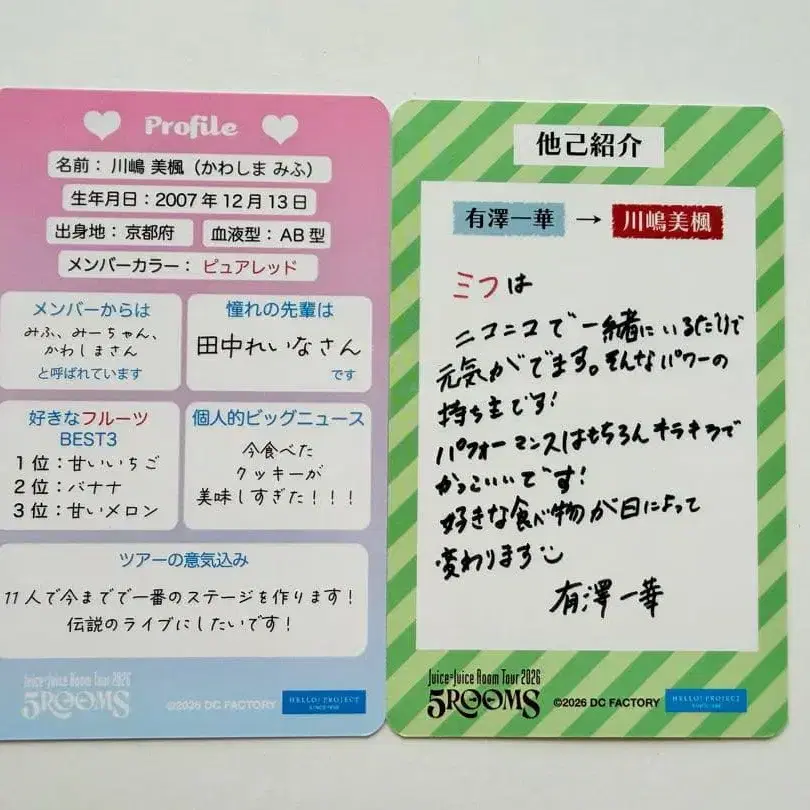 Profile
名前：川嶋 美楓（かわしま みふ）
生年月日：2007年12月13日
出身地：京都府
血液型：AB型
メンバーカラー：ピュアレッド
メンバーからは
みふ、みーちゃん、
かわしまさん
と呼ばれています
憧れの先輩は
田中れいなさん
です
好きなフルーツ
BEST3
1位：甘いいちご
2位：バナナ
3位：甘いメロン
個人的ビッグニュース
今食べた
クッキーが
美味しすぎた！！！
ツアーの意気込み
11人で今までで一番のステージを作ります！
伝説のライブにしたいです！
Juice=Juice Room Tour 2026
5ROOMS
©2026 DC FACTORY
HELLO! PROJECT
他己紹介
有澤一華 → 川嶋美楓
ミフは
ニコニコで一緒にいる(だけ)で
元気がでます。そんなパワーの
持ち主です！
パフォーマンスはもちろんキラキラで
かっこいいです！
好きな食べ物が日によって
変わります
有澤一華
Juice=Juice Room Tour 2026
5ROOMS
©2026 DC FACTORY
HELLO! PROJECT